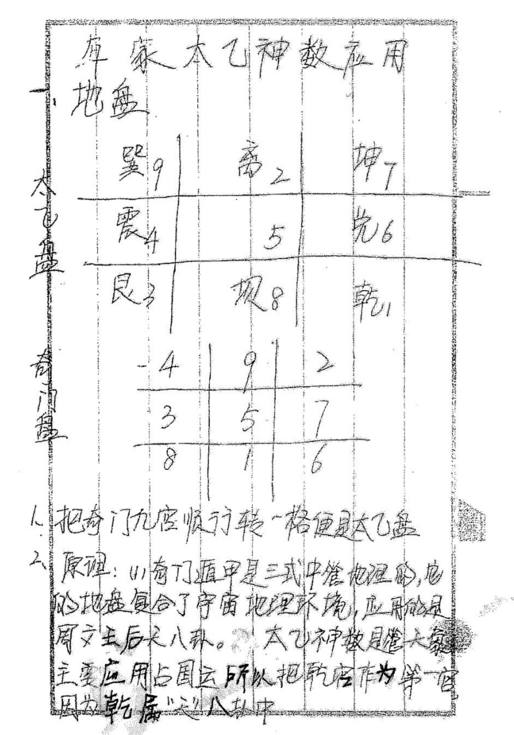 库蒙太乙神数应用
地盘
太乙盘
巽9 离2 坤7
震4 5 兑6
艮3 坝8 乾1
奇门盘
4 9 2
3 5 7
8 1 6
1、把奇门九宫顺行转一格便是太乙盘
2、原理:(1)奇门遁甲是三式中管地理的,它
的地盘复合了宇宙地理环境,应用的是
周文王后天八卦。 太乙神数是管天象
主要应用占国运所以把乾宫作为第一宫
因为乾属“天”八卦中